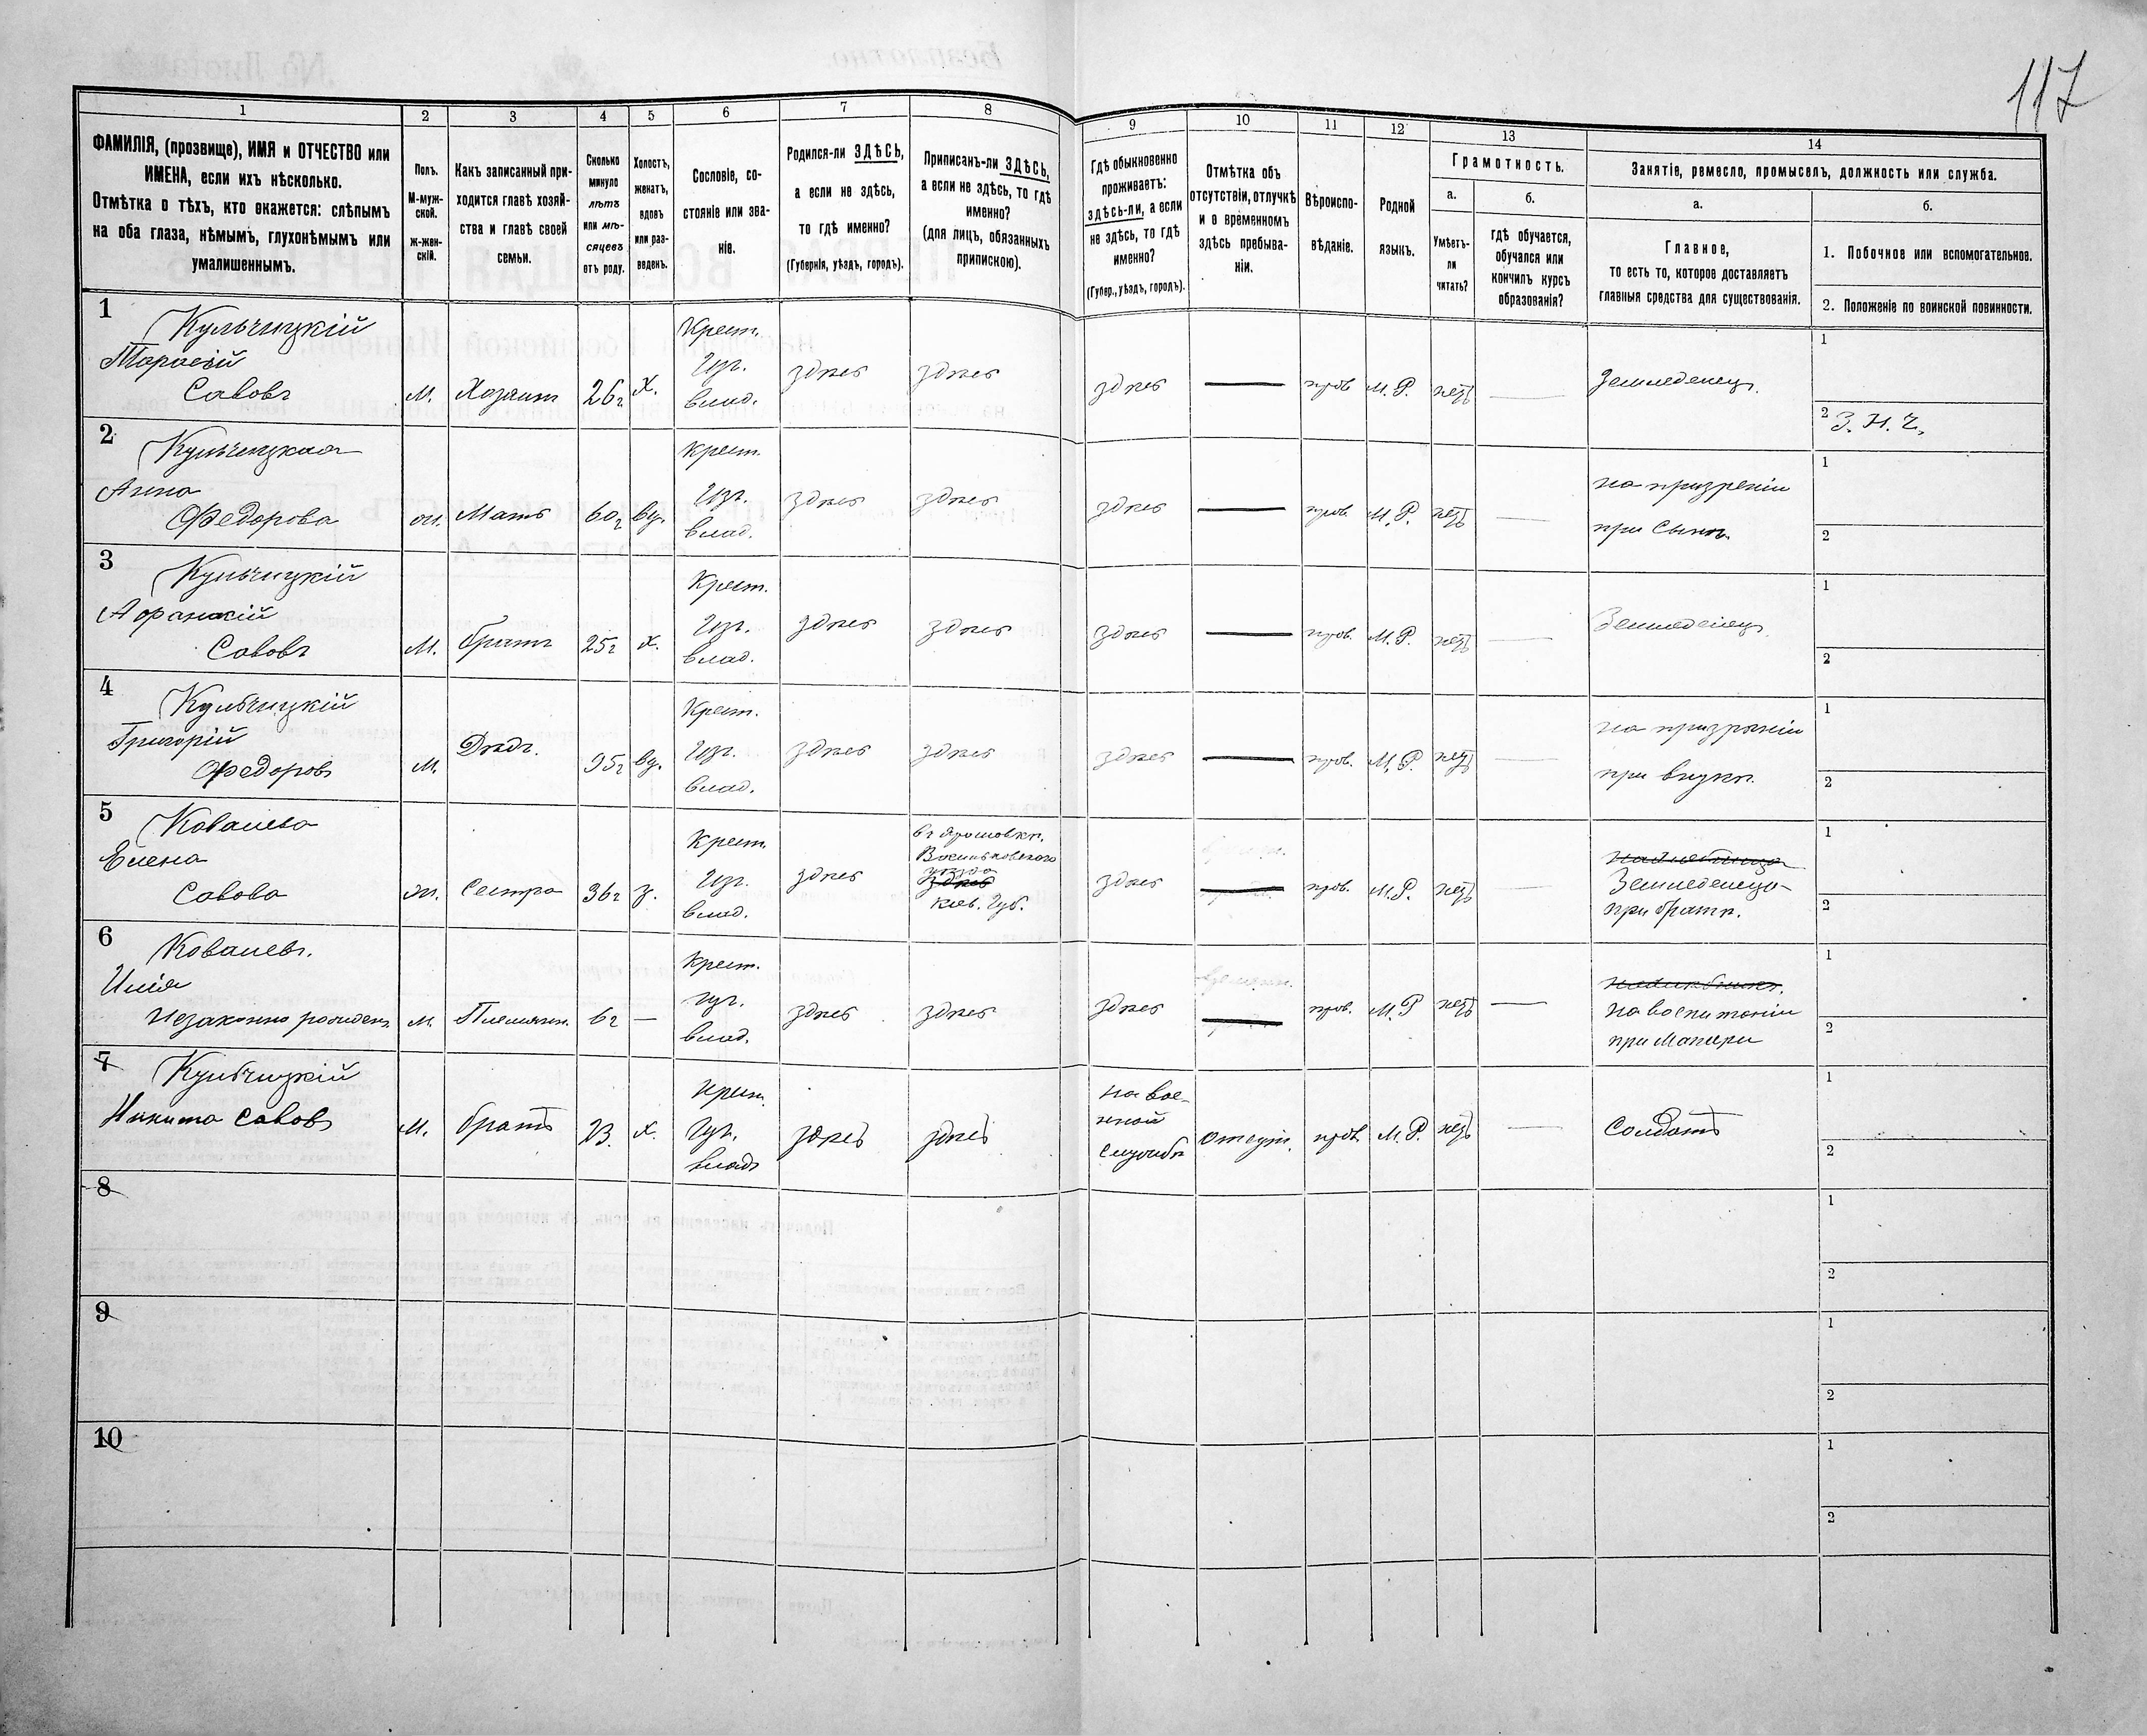 117
1
2
3
4
5
6
7
8
9
10
11
12
13
14
ФАМИЛІЯ, (прозвище), ИМЯ и ОТЧЕСТВО или
ИМЕНА, если ихъ нѣсколько.
Отмѣтка о тѣхъ, кто окажется: слѣпымъ
на оба глаза, нѣмымъ, глухонѣмымъ или
умалишеннымъ.
Полъ.
М-муж-
ской.
ж-жен-
скій.
Какъ записанный при-
ходится главѣ хозяй-
ства и главѣ своей
семьи.
Сколько
минуло
лѣтъ
или мѣ-
сяцевъ
отъ роду.
Холостъ,
женатъ,
вдовъ
или раз-
веденъ.
Сословіе, со-
стояніе или зва-
ніе.
Родился-ли ЗДѢСЬ,
а если не здѣсь,
то гдѣ именно?
(Губернія, уѣздъ, городъ).
Приписанъ-ли ЗДѢСЬ,
а если не здѣсь, то гдѣ
именно?
(для лицъ, обязанныхъ
припискою).
Гдѣ обыкновенно
проживаетъ:
здѣсь-ли, а если
не здѣсь, то гдѣ
именно?
(Губер., уѣздъ, городъ).
Отмѣтка объ
отсутствіи, отлучкѣ
и о временномъ
здѣсь пребыва-
ніи.
Вѣроиспо-
вѣданіе.
Родной
языкъ.
Грамотность.
а.
Умѣетъ-
ли
читать?
б.
гдѣ обучается,
обучался или
кончилъ курсъ
образованія?
Занятіе, ремесло, промыселъ, должность или служба.
а.
Главное,
то есть то, которое доставляетъ
главныя средства для существованія.
б.
1. Побочное или вспомогательное.
2. Положеніе по воинской повинности.
1
Кульчицкій
Тарасій
Савовъ
М.
Хозяинъ
26 г
х.
Крест.
Изъ.
влад.
здѣсь
здѣсь
здѣсь
—
прав
М. Р.
нетъ
—
Земледѣлецъ.
1
2 З. Н. Ч.
2
Кульчицкая
Анна
Федорова
ж.
Мать
60 г
вд.
Крест.
Изъ.
влад.
здѣсь
здѣсь
здѣсь
—
прав.
М. Р.
нетъ
—
на призреніи
при Сынѣ.
1
2
3
Кульчицкій
Савовъ
М.
братъ
25 г
х.
Крест.
Изъ.
влад.
здѣсь
здѣсь
здѣсь
—
прав.
М. Р.
нетъ
—
Земледѣлецъ
1
2
4
Кульчицкій
Григорій
Федоровъ
М.
Дѣдъ.
95 г
вд.
Крест.
Изъ.
влад.
здѣсь
здѣсь
здѣсь
—
прав.
М. Р.
нетъ
—
на призрѣніи
при внукѣ.
1
2
5
Ковалева
Елена
Савова
ж.
Сестра
36 г
з.
Крест.
Изъ.
влад.
здѣсь
уѣзда
здѣсь
Кіев. Губ.
здѣсь
—
прав.
М. Р.
нетъ
—
Земледелица
при братѣ.
1
2
6
Ковалевъ.
Илія
Незаконно рожден.
м.
Племянн.
6 г
—
Крест.
изъ.
влад.
здѣсь
здѣсь
здѣсь
—
прав.
М. Р
нетъ
—
на воспитаніи
при Матери
1
2
7
Кульчицкій
Никита Савовъ
М.
братъ
23.
х.
Крест.
Изъ.
влад
здѣсь
здѣсь
на вое-
нной
службѣ
отсут.
прав
М. Р.
нетъ
—
Солдатъ
1
2
8
1
2
9
1
2
10
1
2